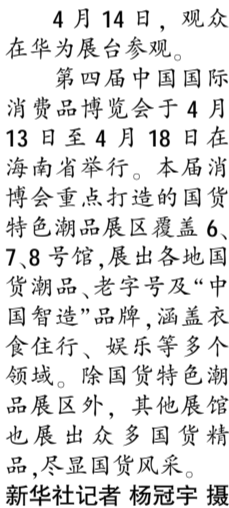 4月14日，观众
在华为展台参观。
第四届中国国际
消费品博览会于4月
13日至4月18日在
海南省举行。本届消
博会重点打造的国货
特色潮品展区覆盖6、
7、8号馆，展出各地国
货潮品、老字号及“中
国智造”品牌，涵盖衣
食住行、娱乐等多个
领域。除国货特色潮
品展区外，其他展馆
也展出众多国货精
品，尽显国货风采。
新华社记者 杨冠宇 摄